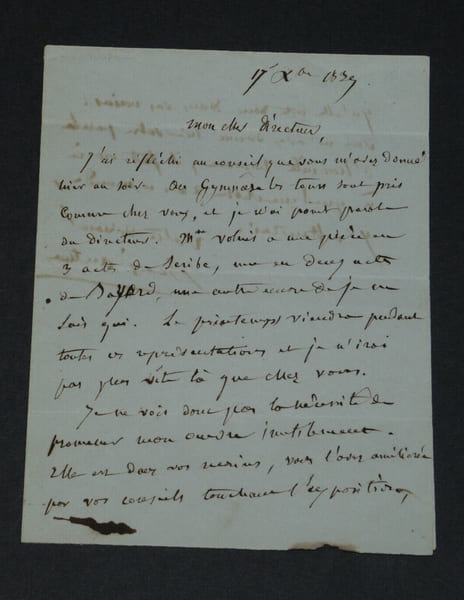 17 Xbre 1839
mon cher directeur,
J'ai réfléchi au conseil que vous m'avez donné
hier au soir. Au Gymnase les tours sont pris
comme chez vous, et je n'ai point parole
du directeur. Mme Volnis a une pièce en
3 actes de Scribe, une en deux actes
de Bayard, une autre encore de je ne
sais qui. Le printemps viendra pendant
toutes ces représentations et je n'irai
pas plus vite là que chez vous.
Je ne vois donc pas la nécessité de
promener mon œuvre inutilement.
Elle est dans vos mains, vous l'avez améliorée
par vos conseils touchant l'exposition,